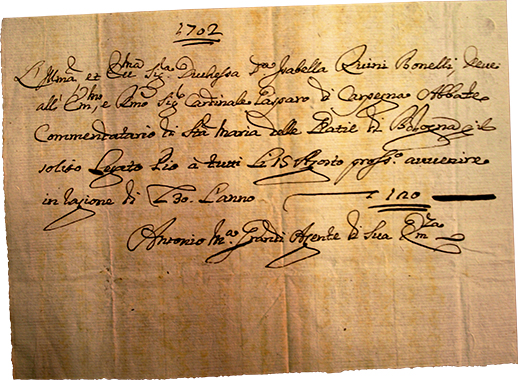 1702
L'Illma et Ecc.ma Sig.a Duchessa D.a Isabella Ruini Bonelli, Deve
all' Em.mo, e R.mo Sig.r Cardinale Gasparo di Carpegna Abbate
Commendatario di Sta Maria delle Gratie di Bologna, il
solito Legato Pio à tutti li 15 Agosto pross.o avvenire
in ragione di 30. l'anno 120
Antonio M.a Grandi Agente di Sua Em.za